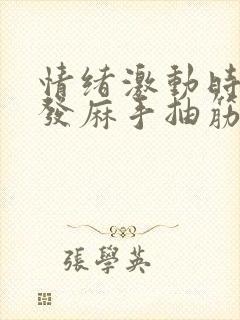 情緒激動時
發麻手抽筋
張學英